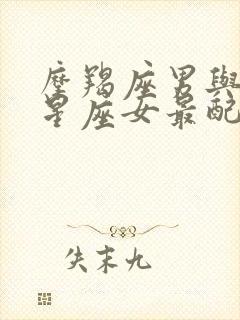 摩羯座男與
星座女最配
失末九